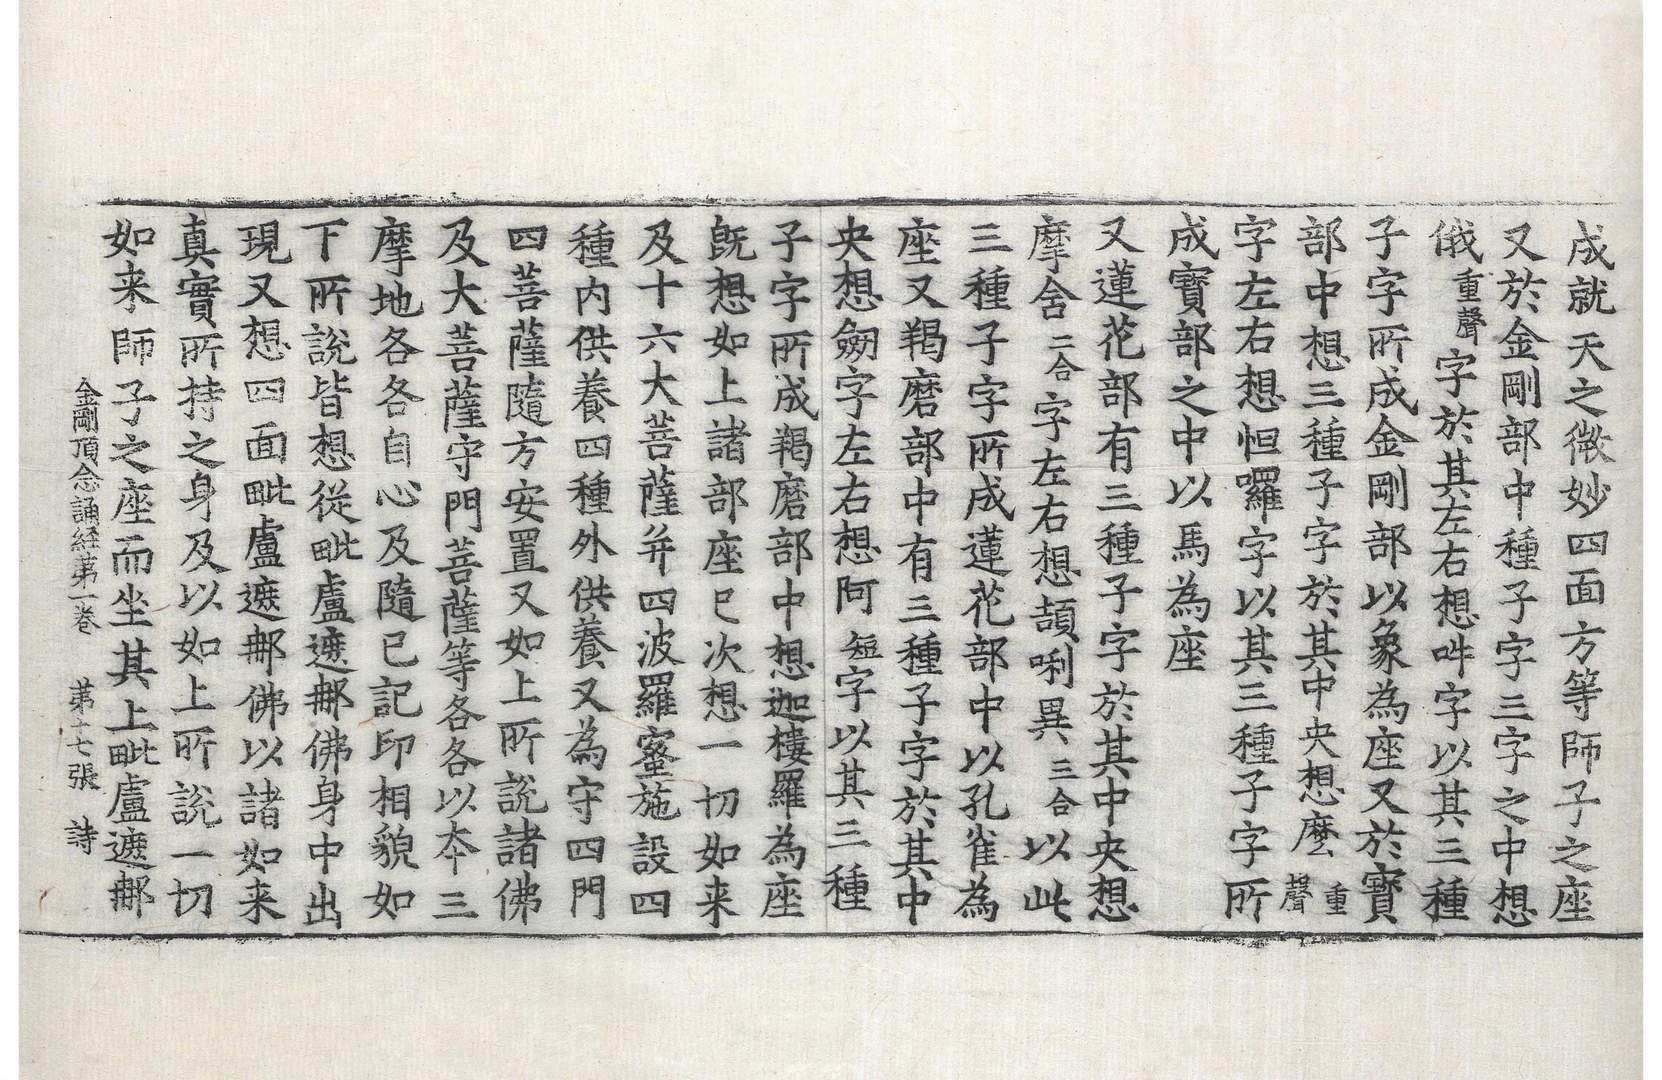 成就天之微妙四面方等師子之座
又於金剛部中種子字三字之中想
俄重聲字於其左右想吽字以其三種
子字所成金剛部以象為座又於寶
部中想三種子字於其中央想麼重聲
字左右想怛囉字以其三種子字所
成寶部之中以馬為座
又蓮花部有三種子字於其中央想
摩舍二合字左右想頡唎異三合以此
三種子字所成蓮花部中以孔雀為
座又羯磨部中有三種子字於其中
央想劒字左右想阿短字以其三種
子字所成羯磨部中想迦樓羅為座
旣想如上諸部座已次想一切如来
及十六大菩薩并四波羅蜜施設四
種內供養四種外供養又為守四門
四菩薩隨方安置又如上所說諸佛
及大菩薩守門菩薩等各各以夲三
摩地各各自心及隨已記印相貌如
下所說皆想從毗盧遮那佛身中出
現又想四面毗盧遮那佛以諸如来
真實所持之身及以如上所說一切
如来師子之座而坐其上毗盧遮那
金剛頂念誦経苐一卷　苐十七張　詩